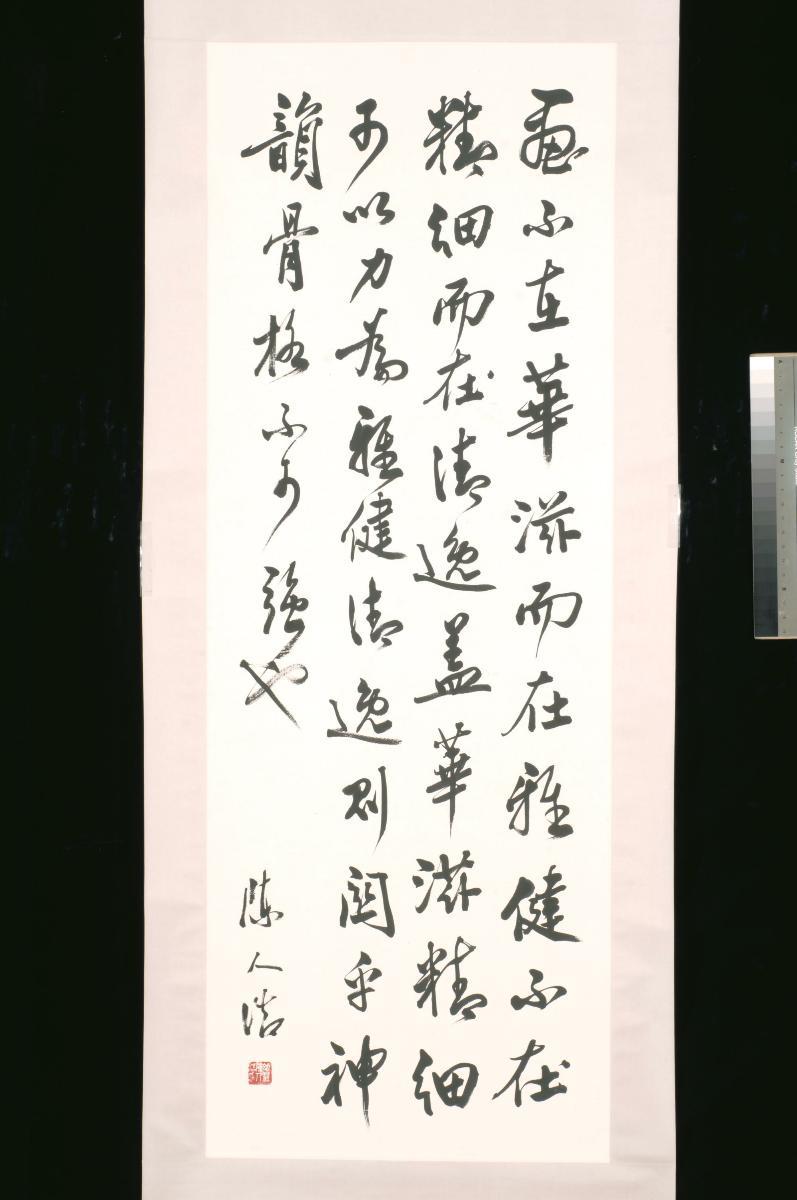 畫不在華滋而在雅健不在
精細而在清逸蓋華滋精細
可以力為雅健清逸則關乎神
韻骨格不可強也
陳人浩